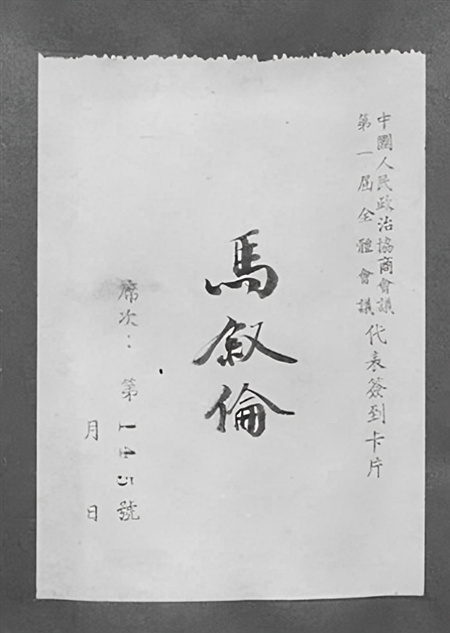 中國人民政治協商會議
第一屆全體會議
代表簽到卡片
馬叙倫
席次：第145號
月 日